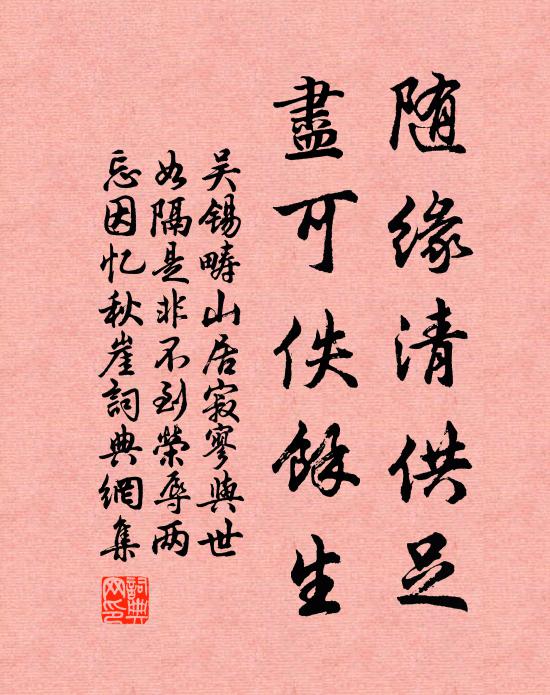 随緣清供足
盡可佚餘生
吴锡疇山居寂寥與世
如隔是非不到榮辱两
忘因忆秋崖詞典網集
詞典网印